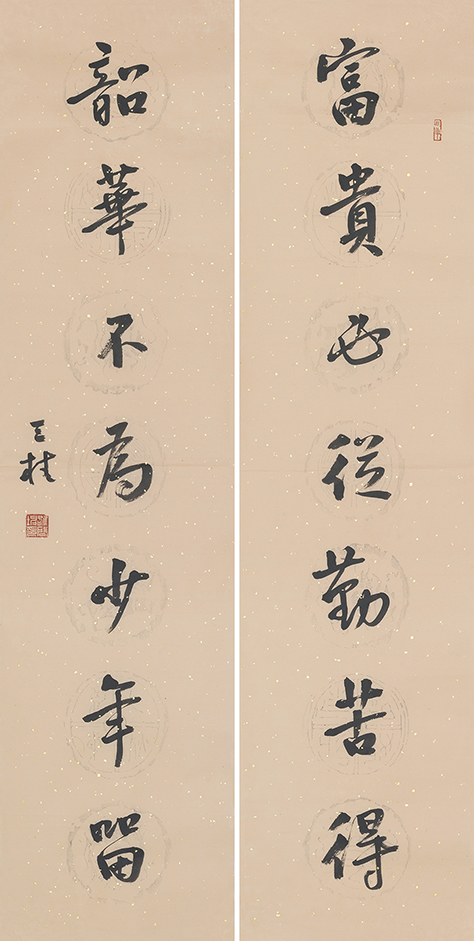 富貴必從勤苦得
韶華不為少年留
天桂